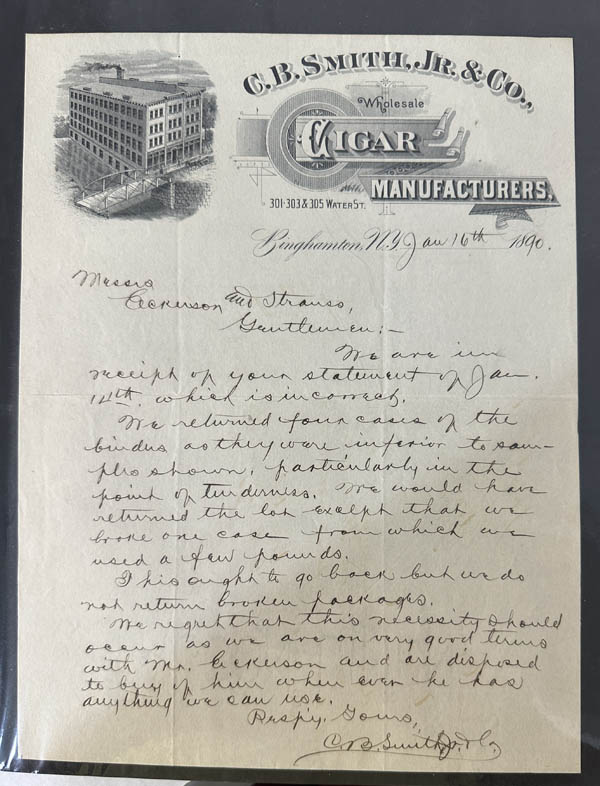 C. B. SMITH, JR. & CO.,
Wholesale
CIGAR
MANUFACTURERS.
301-303 & 305 WATER ST.
Binghamton, N.Y. Jan 16th 1890.
Messrs
Eckerson and Strauss,
Gentlemen:-
We are in
receipt of your statement of Jan.
14th. which is incorrect.
We returned four cases of the
binders as they were inferior to sam-
ples shown, particularly in the
point of tenderness. We would have
returned the lot except that we
broke one case from which we
used a few pounds.
This ought to go back but we do
not return broken packages.
We regret that this necessity should
occur as we are on very good terms
with Mr. Eckerson and are disposed
to buy of him when ever he has
anything we can use.
Respy. Yours,
C. B. Smith Jr & Co.